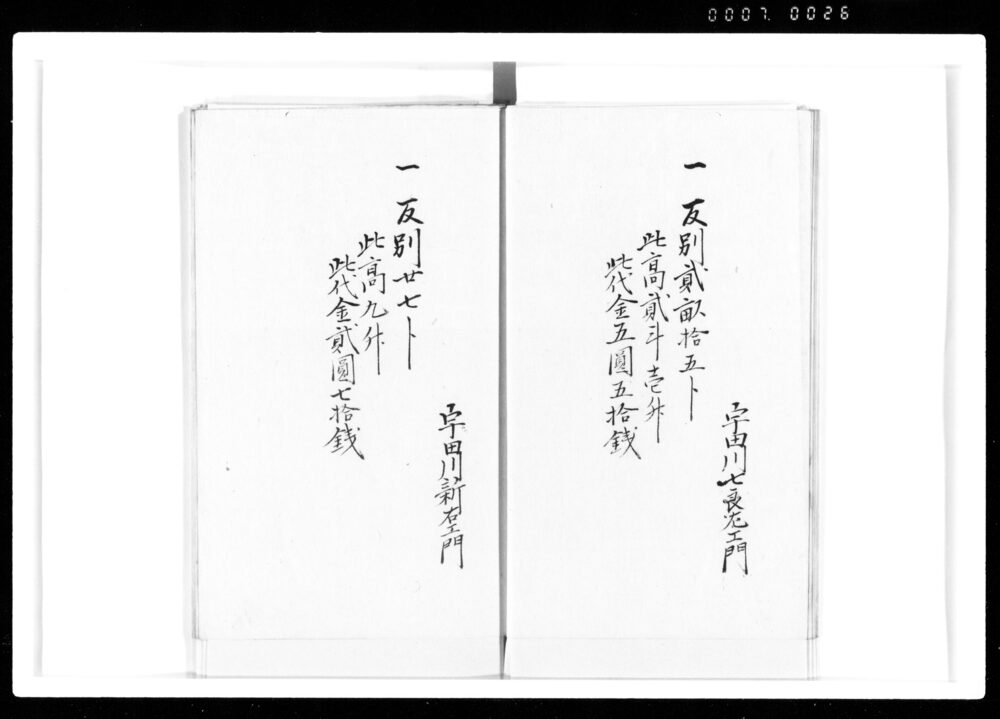 0007. 0026
一 反別貳畝拾五卜
此高貳斗壱升
此代金五圓五拾銭
宇田川七良左エ門
一 反別廿七卜
此高九升
此代金貳圓七拾銭
宇田川新右エ門